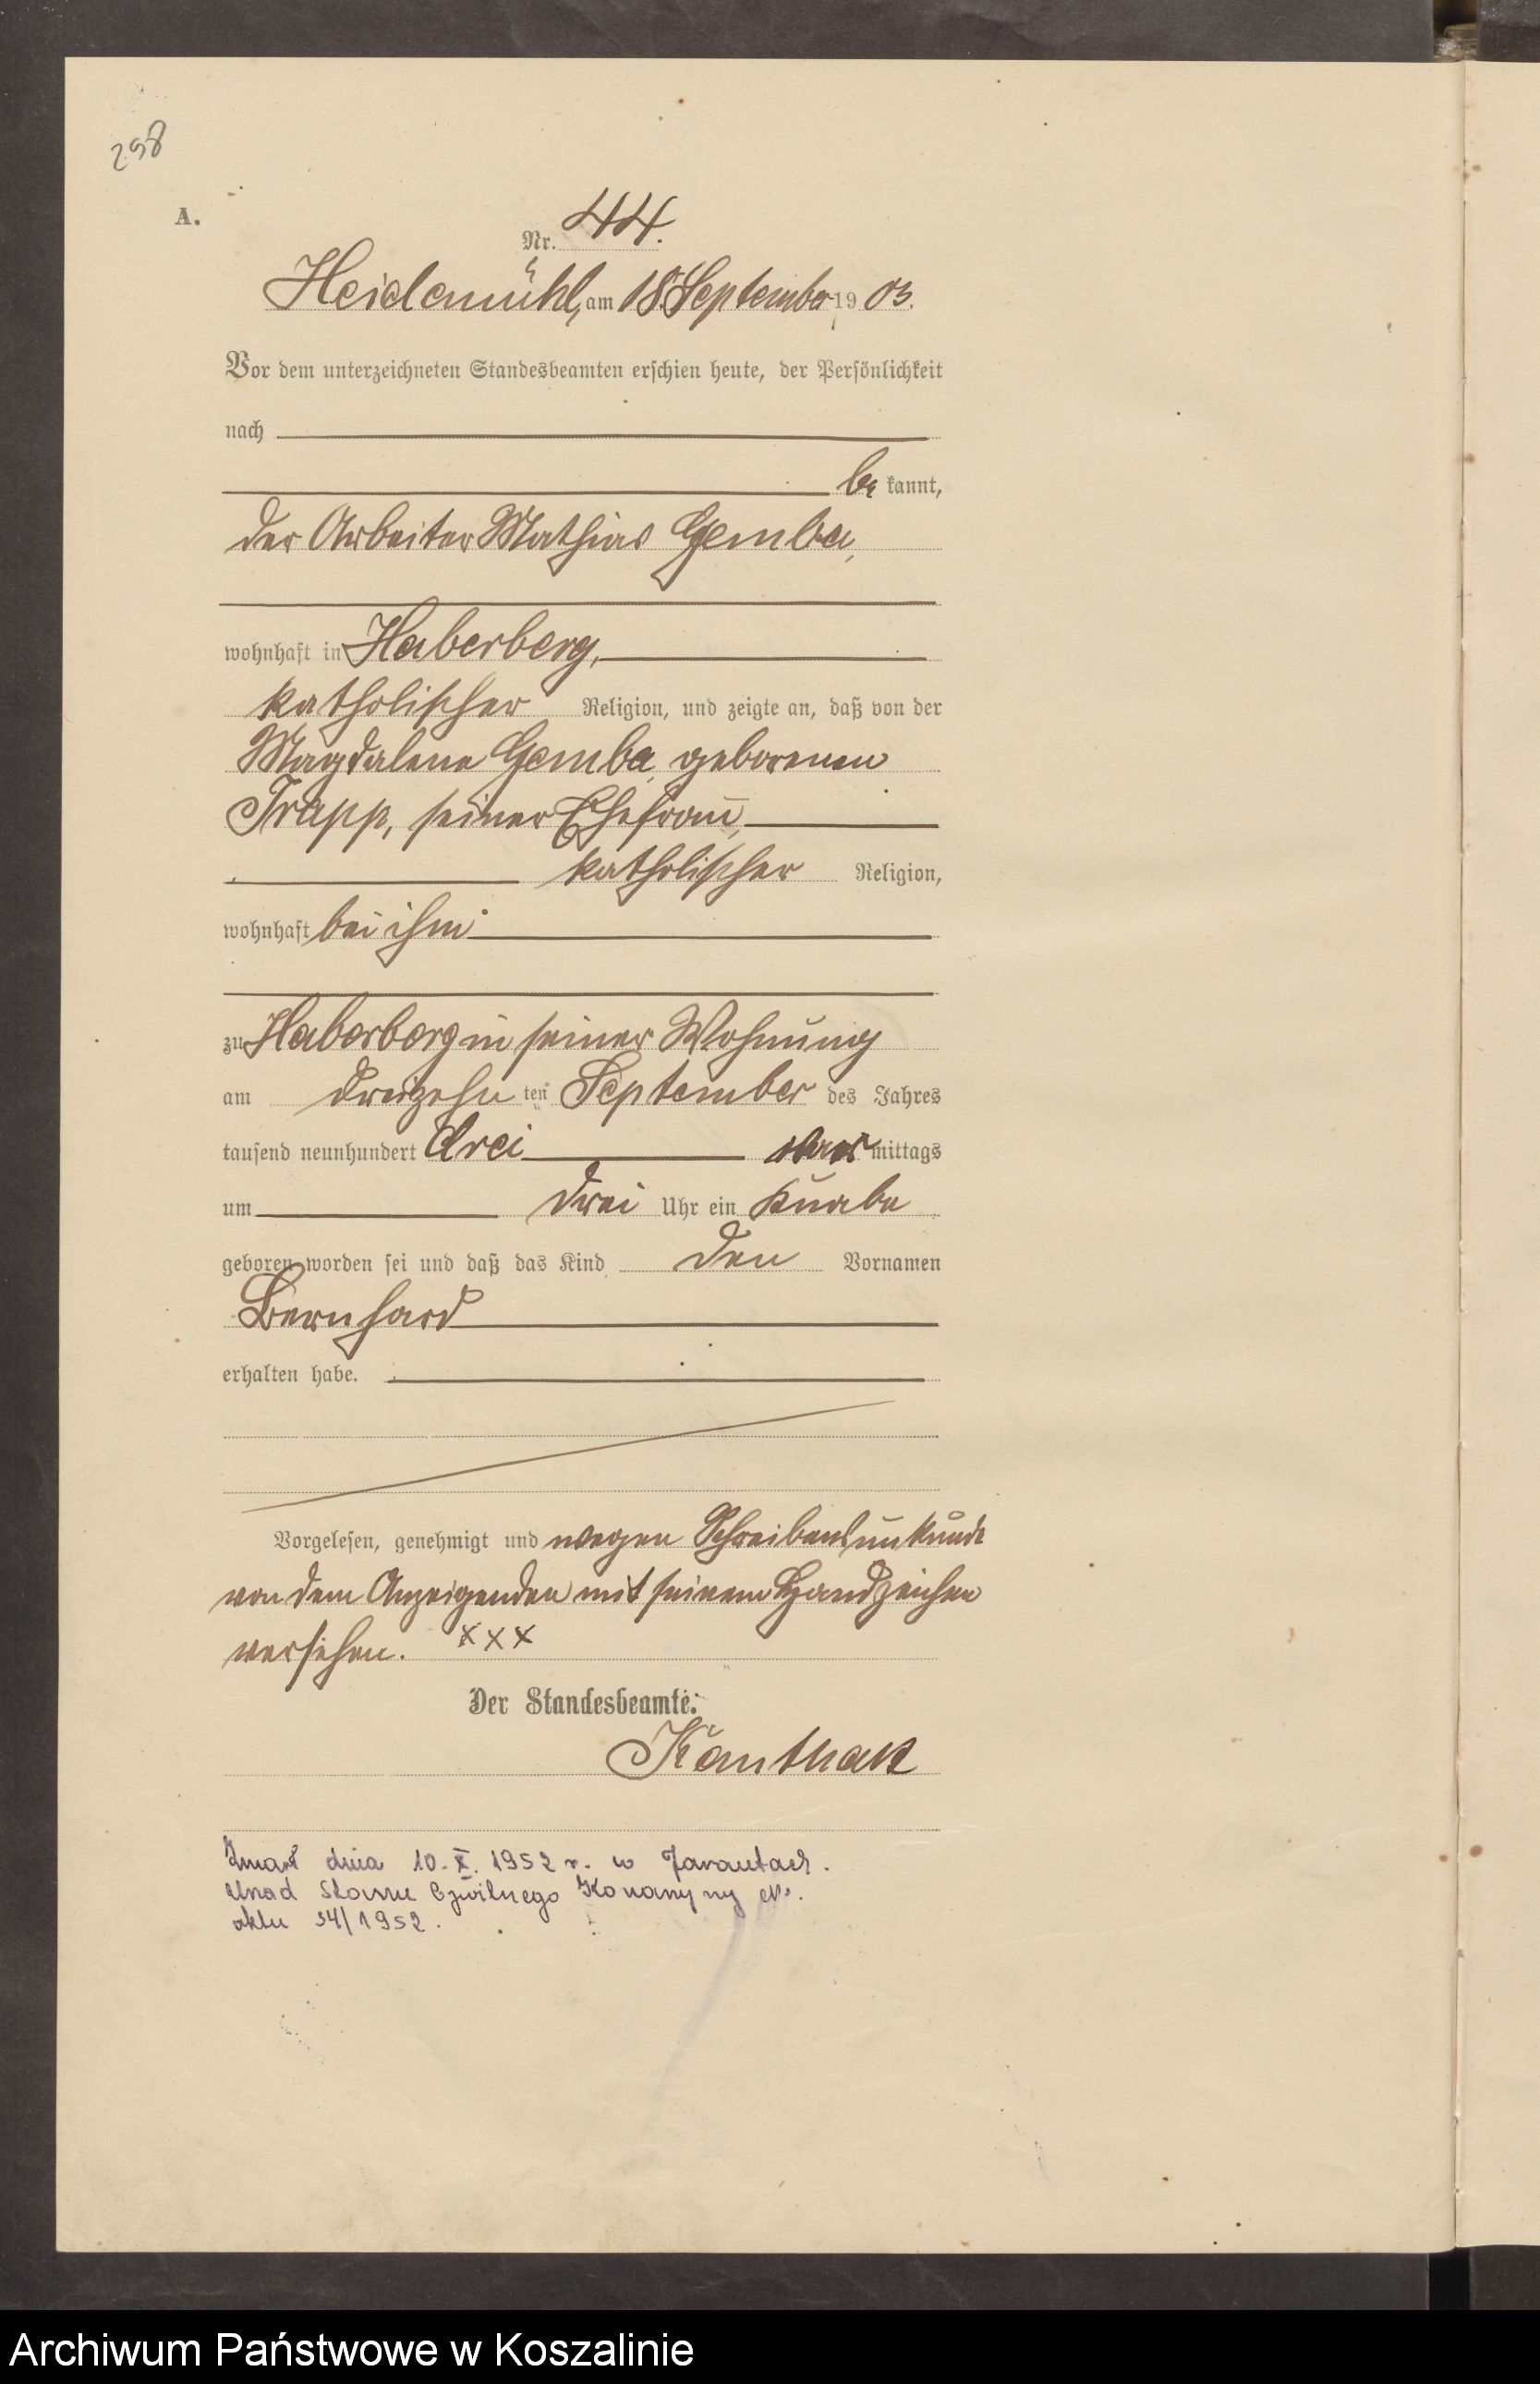 298
A.
Nr. 44.
Heidemühl, am 18. September 1903.
Vor dem unterzeichneten Standesbeamten erschien heute, der Persönlichkeit
nach
be kannt,
der Arbeiter Mathias Gemba,
wohnhaft in Haberberg,
katholischer Religion, und zeigte an, daß von der
Magdalene Gemba geborenen
Trapp, seiner Ehefrau,
katholischer Religion,
wohnhaft bei ihm
zu Haberberg in seiner Wohnung
am dreizehn ten September des Jahres
tausend neunhundert drei mittags
um drei Uhr ein Knabe
geboren worden sei und daß das Kind den Vornamen
Bernhard
erhalten habe.
Vorgelesen, genehmigt und wegen Schreibensunkunde
von dem Anzeigenden mit seinem Handzeichen
versehen. xxx
Der Standesbeamte.
Kanthak
Zmarł dnia 10. X. 1952 r. w
Urząd Stanu Cywilnego Konarzyny Nr.
aktu 34/1952.
Archiwum Państwowe w Koszalinie